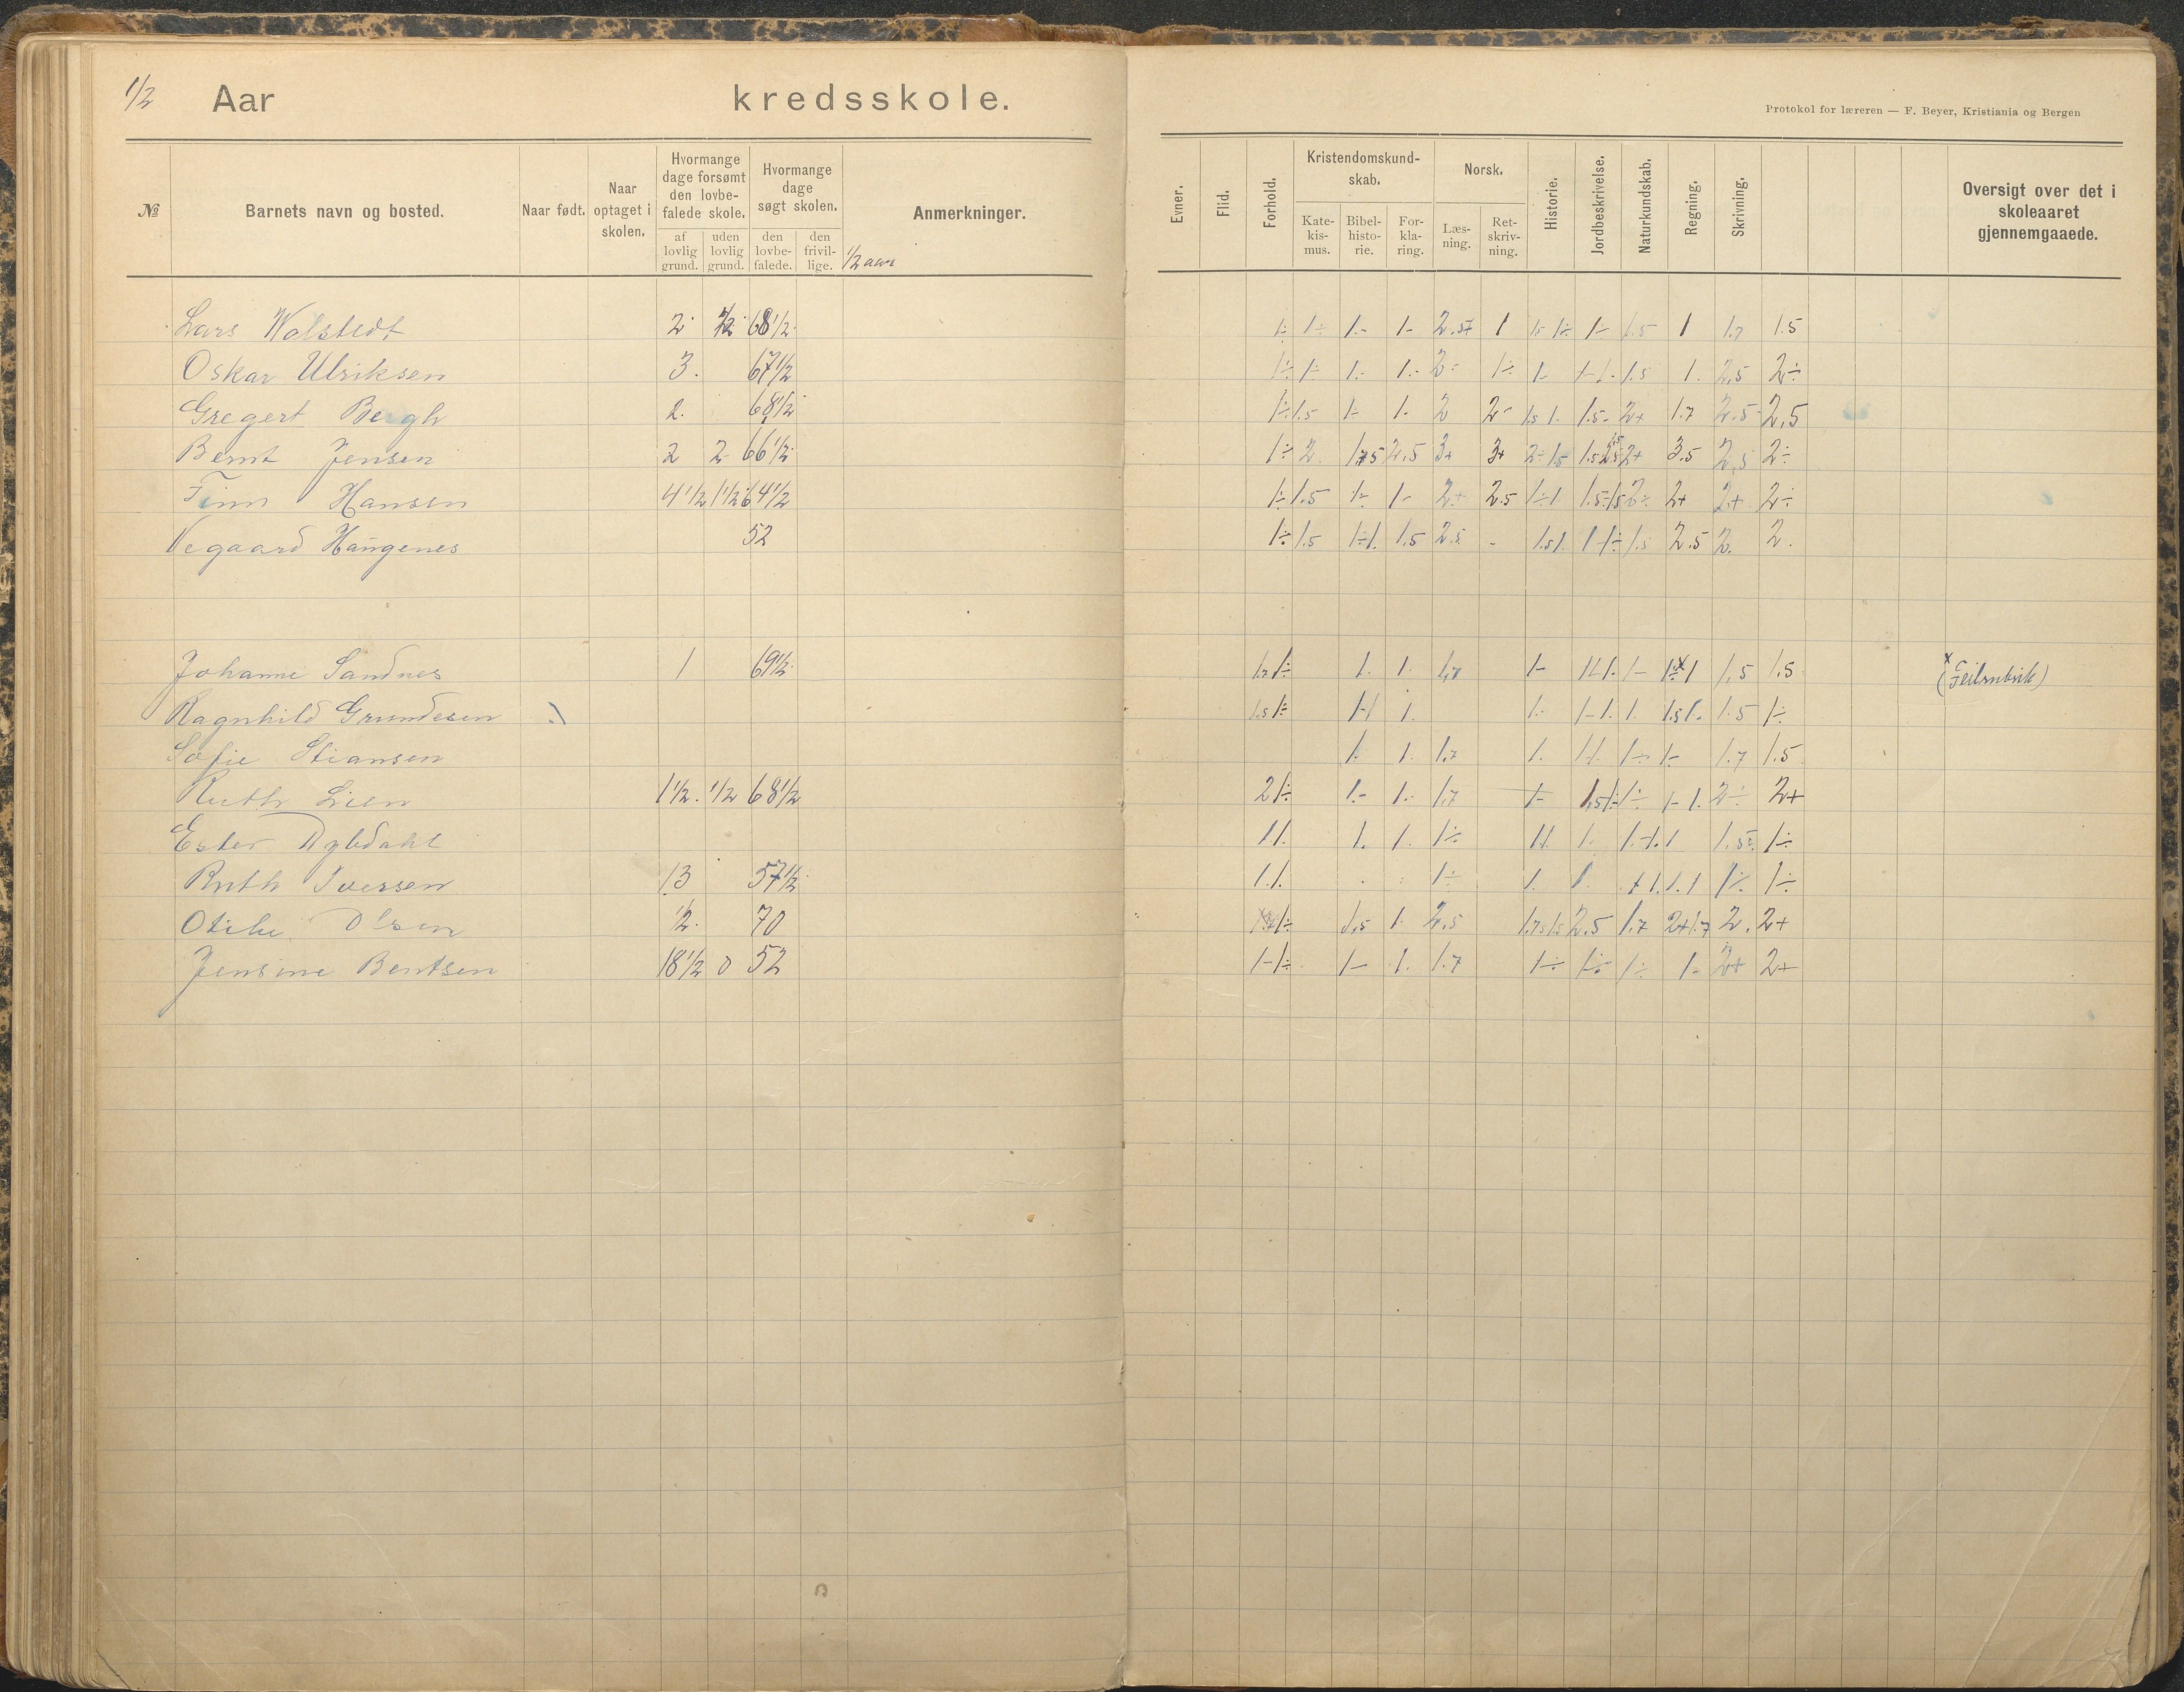 1/2 Aar kredsskole.
Protokol for læreren — F. Beyer, Kristiania og Bergen
№ Barnets navn og bosted. Naar født. Naar optaget i skolen. Hvormange dage forsømt den lovbefalede skole. af lovlig grund. uden lovlig grund. Hvormange dage søgt skolen. den lovbefalede. den frivillige. Anmerkninger. 1/2 aar
Evner. Flid. Forhold. Kristendomskundskab. Katekismus. Bibelhistorie. Forklaring. Norsk. Læsning. Retskrivning. Historie. Jordbeskrivelse. Naturkundskab. Regning. Skrivning. Oversigt over det i skoleaaret gjennemgaaede.
Lars Walstedt 2 1/2 68 1/2 1÷ 1÷ 1- 1- 2.5+ 1 1.5 1÷ 1- 1.5 1 1.7 1.5
Oskar Ulriksen 3. 67 1/2 1÷ 1÷ 1- 1.- 2- 1÷ 1- 1-1- 1.5 1. 2,5 2÷
Gregert Bergh 2. 68 1/2 1÷ 1.5 1- 1- 2 2- 1.5 1. 1.5- 2+ 1.7 2.5 2,5
Bernt Jensen 2 2 66 1/2 1÷ 2. 1.75 2,5 3+ 3+ 2÷ 1.5 2+ 3.5 2,5 2÷
Finn Hansen 4 1/2 1 1/2 64 1/2 1÷ 1.5 1÷ 1- 2+ 2.5 1÷1 1.5÷1.5 2÷ 2+ 2+ 2÷
Vegaard Haugenes 52 1÷ 1.5 1÷1. 1.5 2.5 - 1.5 1. 1 1÷ 1.5 2.5 2. 2.
Johanne Sandnes 1 69 1/2 1.7 1÷ 1. 1. 1,7 1- 1 1. 1- 1÷ x 1 1,5 1.5 x (Feilrubrik)
Ragnhild Grundesen 1.5 1÷ 1-1 1. 1- 1-1. 1. 1.5 1. 1.5 1÷
Sofie Stiansen 1. 1. 1.7 1. 1 1. 1÷ 1- 1.7 1.5
Ruth Lien 1 1/2. 1/2 68 1/2 2 1÷ 1.- 1.- 1,7 1- 1,5 1÷ 1÷ 1- 1. 2÷ 2+
Ester Dybdahl 1 1. 1. 1. 1÷ 1 1. 1. 1-1.1 1.5÷ 1÷
Ruth Iversen 13 57 1/2 1.1. 1÷ 1. 1. 1 1.1.1 1÷ 1÷
Otilie Olsen 1/2. 70 1÷ 1,5 1. 2,5 1.75 1.5 2.5 1.7 2+ 1.7 2. 2+
Jensine Bentsen 18 1/2 0 52 1-1÷ 1- 1. 1.7 1÷ 1÷ 1÷ 1- 2+ 2+